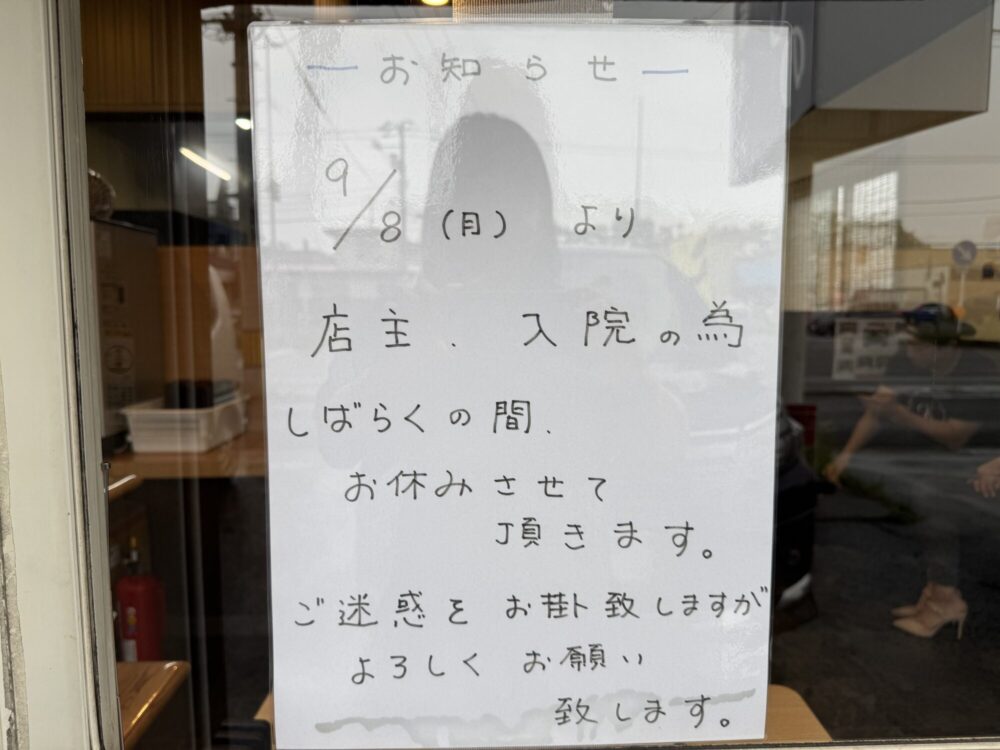 お知らせ
9/8(月) より
店主、入院の為
しばらくの間、
お休みさせて
頂きます。
ご迷惑を お掛致しますが
よろしく お願い
致します。